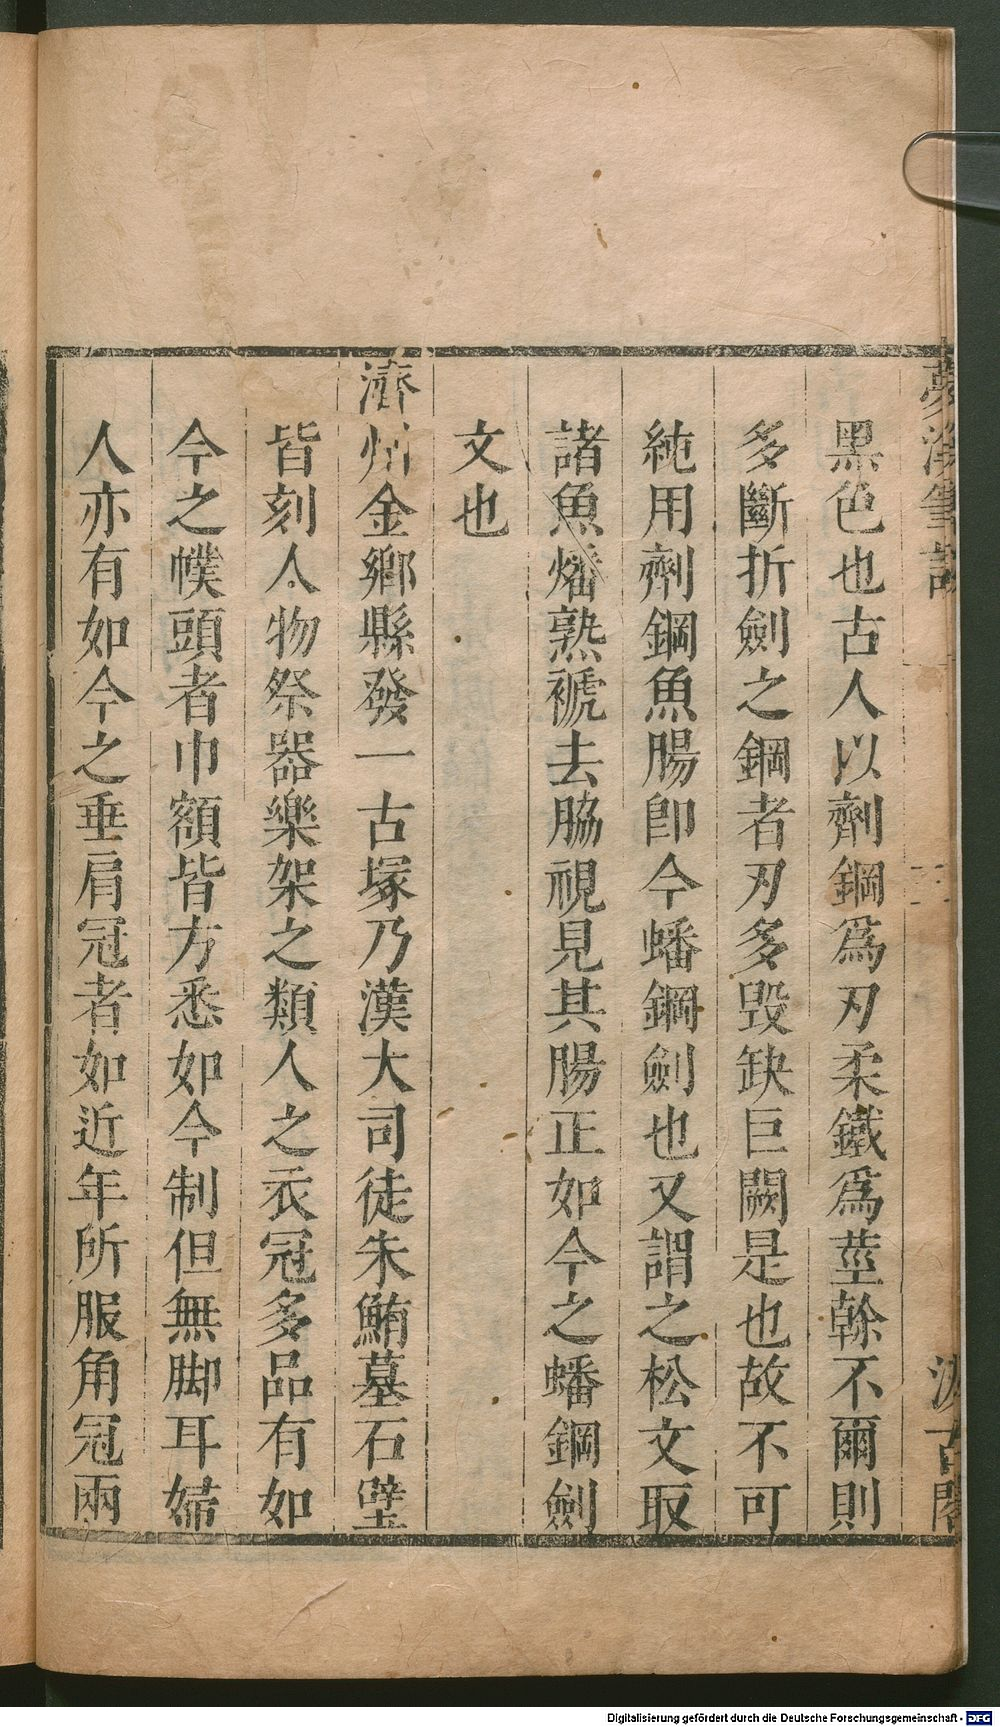 夢溪筆談
汲古閣
黑色也古人以劑鋼爲刃柔鐵爲莖幹不爾則
多斷折劍之鋼者刃多毀缺巨闕是也故不可
純用劑鋼魚腸卽今蟠鋼劍也又謂之松文取
諸魚燔熟褫去脇視見其腸正如今之蟠鋼劍
文也
濟州金鄉縣發一古塚乃漢大司徒朱鮪墓石壁
皆刻人物祭器樂架之類人之衣冠多品有如
今之幞頭者巾額皆方悉如今制但無脚耳婦
人亦有如今之垂肩冠者如近年所服角冠兩
Digitalisierung gefördert durch die Deutsche Forschungsgemeinschaft - DFG